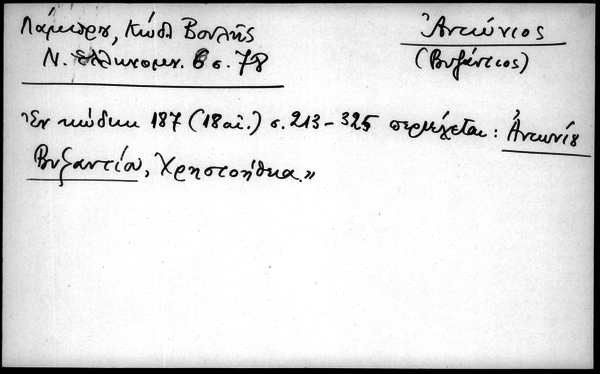 Λάμπρου, Κώδ. Βουλῆς
Ν. Ἑλληνομν. 6 σ. 78
Ἀντώνιος
(Βυζάντιος)
Ἐν κώδικι 187 (18 αἰ.) σ. 213-325 περιέχεται: Ἀντωνίȣ
Βυζαντίου, Χρηστοήθεια.»